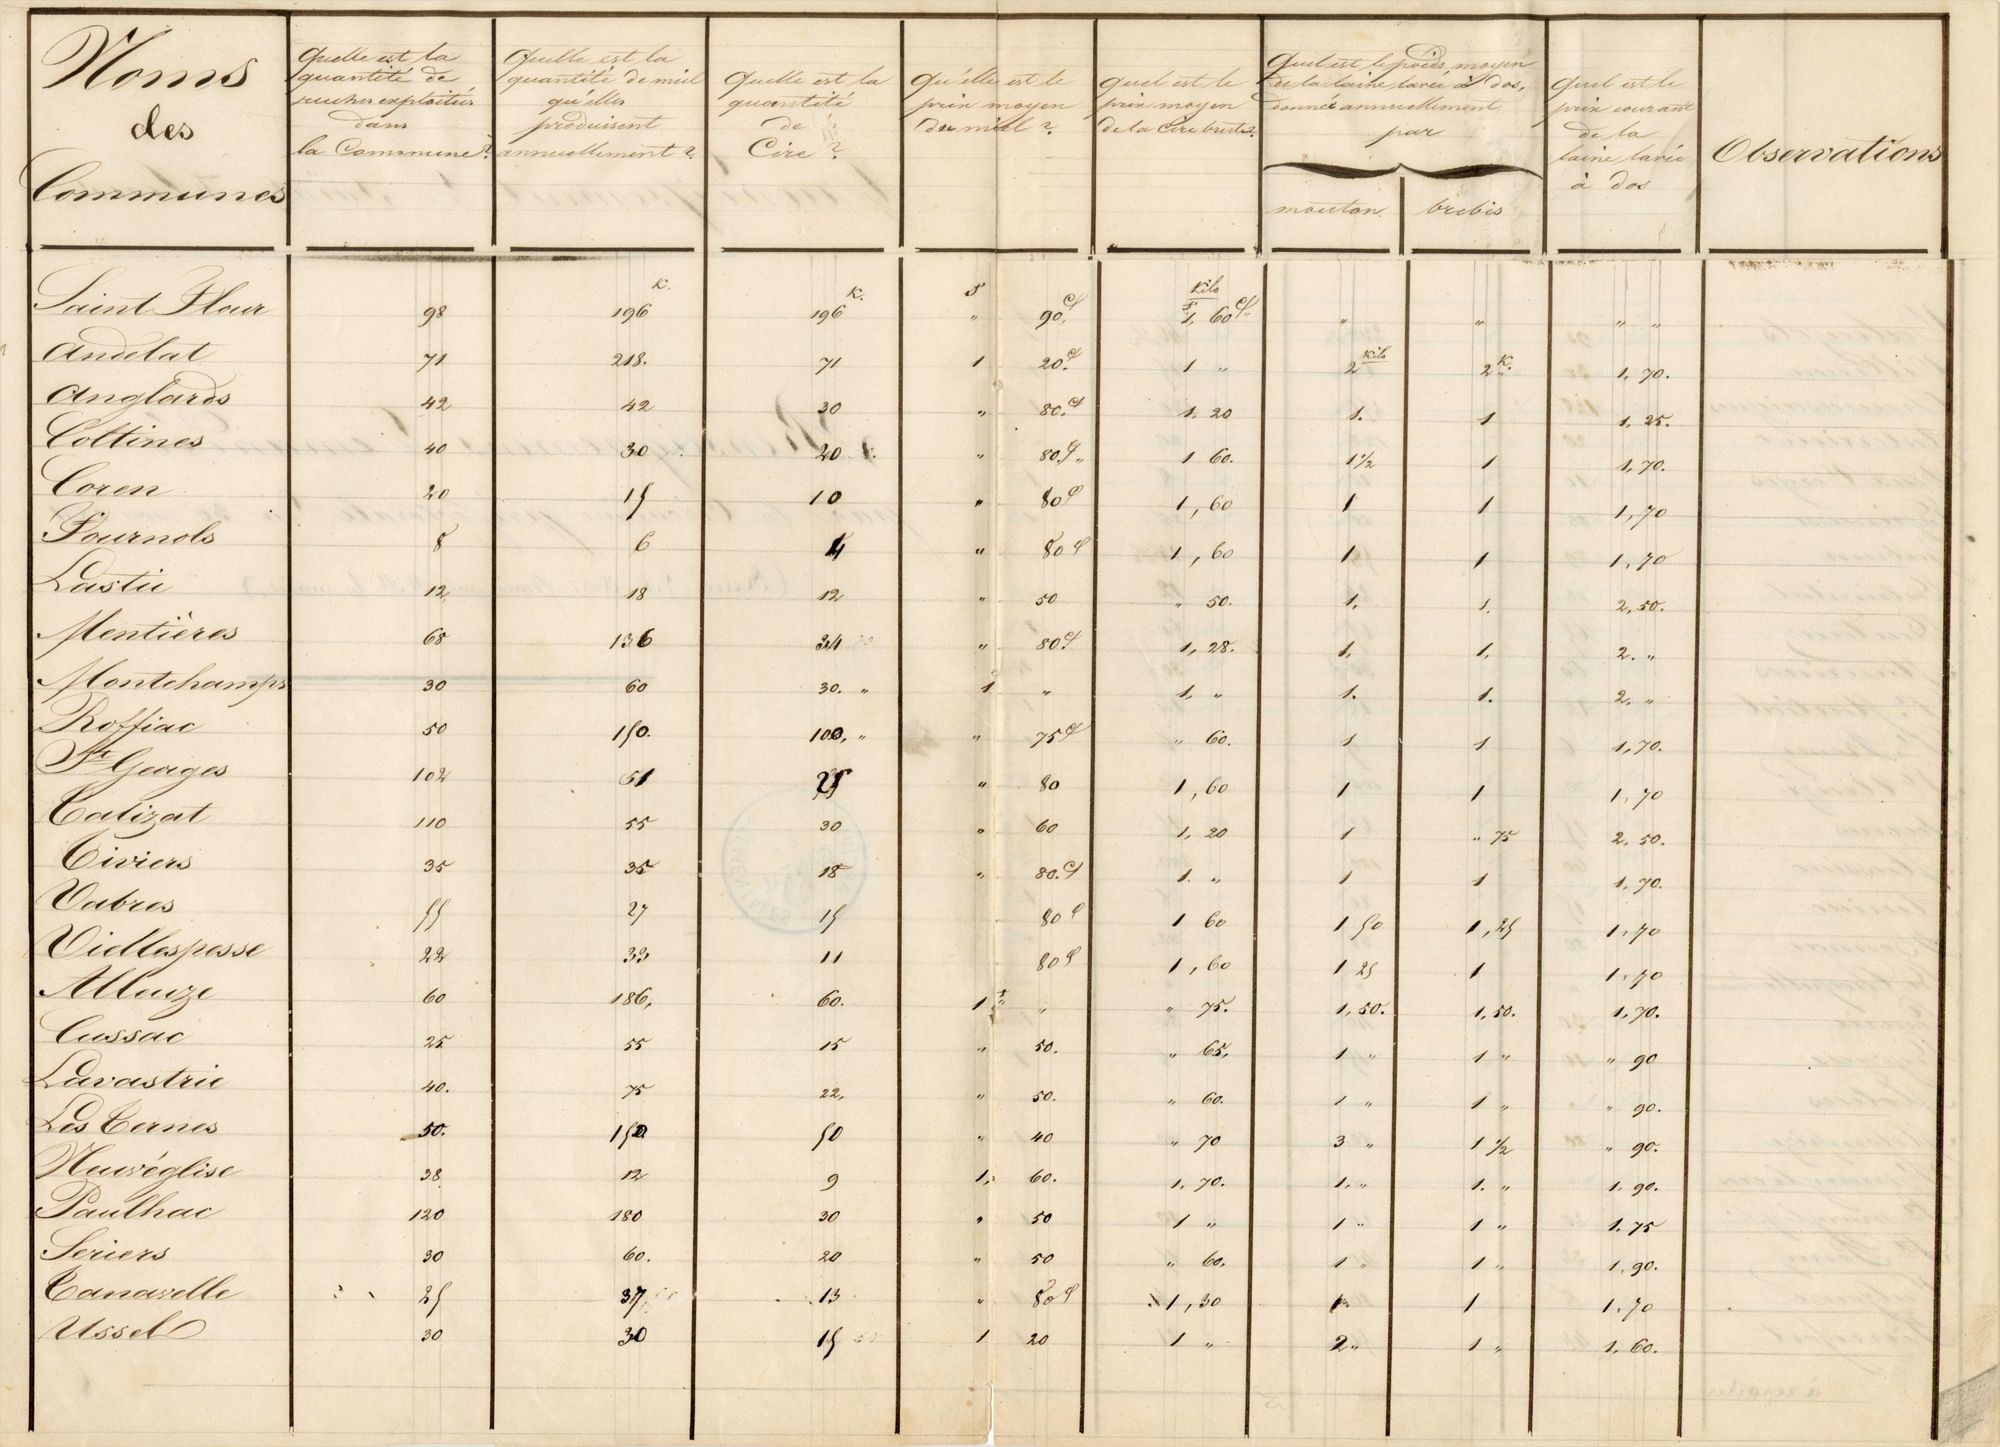 Noms des Communes
Quelle est la quantité de ruches exploitées dans la Commune?
Quelle est la quantité de miel qu'elles produisent annuellement?
Quelle est la quantité de Cire?
Qu'elle est le prix moyen du miel?
quel est le prix moyen de la Cire brute?
Quel est le poids moyen de la laine lavée à dos, donnée annuellement par
mouton
brebis
quel est le prix courant de la laine lavée à dos
Observations
Saint Flour 98 196 k. 196 k. f " 90 c/ Kilo f 1, 60 c/ " " " "
Andelat 71 218. 71 1 20 c/ 1 " 2 Kilo 2 K. 1. 70.
Anglards 42 42 30 " 80. c/ 1. 20 1. 1 1. 25.
Coltines 40 30 20 " 80 c/ " 1 60. 1 1/2 1 1, 70.
Coren 20 15 10 " 80 c 1, 60 1 1 1, 70
Fournols 8 6 4 " 80 c 1, 60 1 1 1. 70
Lastic 12 18 12 " 50 " 50. 1. 1. 2, 50.
Mentières 68 136 34 " 80 c/ 1, 28. 1. 1. 2. "
Montchamps 30 60 30. " 1 " 1. " 1. 1. 2. "
Roffiac 50 150. 100, " " 75 c/ " 60. 1 1 1, 70.
St Georges 102 51 25 " 80 1, 60 1 1 1. 70
Talizat 110 55 30 " 60 1, 20 1 " 75 2. 50.
Tiviers 35 35 18 " 80. c/ 1. " 1 1 1. 70.
Vabres 55 27 15 80 c 1 60 1 50 1, 25 1. 70
Viellespesse 22 33 11 80 c 1, 60 1 25 1 1. 70
Alleuze 60 186, 60. 1 f " " 75. 1, 50. 1, 50. 1. 70.
Cussac 25 55 15 " 50. " 65. 1 " 1 " " 90
Lavastrie 40. 75 22, " 50. " 60. 1 " 1 " " 90.
Les Ternes 50. 150 50 " 40 " 70 3 " 1 1/2 " 90.
Neuvéglise 38 12 9 1. 60. 1. 70. 1. " 1. " 1. 90.
Paulhac 120 180 30 " 50 1 " 1 " 1 " 1. 75
Seriers 30 60. 20 " 50 " 60. 1 " 1 " 1. 90.
Tanavelle 25 37 13 " 80 c 1, 30 1 1 1. 70
Ussel 30 30 15 1 20 1 " 2 " 1 " 1. 60.